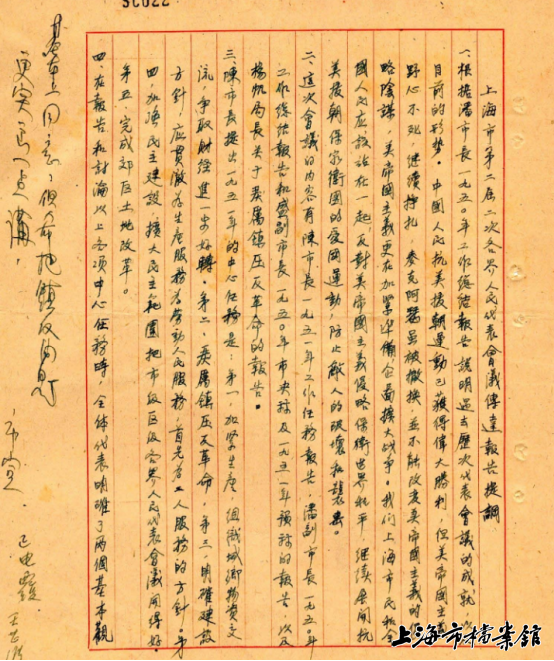 上海市第二屆二次各界人民代表會議傳達報告提綱
一、根據潘市長一九五〇年工作總結報告說明过去歷次代表會議的成就，以及
目前的形势。中國人民抗美援朝運動已獲得偉大勝利，但美帝國主義
野心不死，繼續掙扎，麥克阿瑟虽被撤换，並不能改变美帝國主義的侵
略陰謀，美帝國主義更在加緊準備全面擴大战争。我们上海市民和全
國人民应該站在一起，反對美帝國主義侵略保衛世界和平，继续展開抗
美援朝保家衛國的爱國運動，防止敵人的破壞和襲击。
二、這次會議的内容有陳市長一九五一年工作任務報告，潘副市長一九五〇年
工作總結報告和盛副市長一九五〇年市決算及一九五一年预算的報告以及
楊帆局長关于嚴厲鎮压反革命的報告。
三、陳市長提出一九五一年的中心任務是：第一、加緊生產，組織城鄉物資交
流，爭取財經進一步好轉。第二、嚴厲鎮压反革命，第三、明確建設
方針，应貫徹为生產服務为勞動人民服務，首先为工人服務的方針，第
四、加强民主建設，擴大民主範圍把市级区级各界人民代表會議開得好。
第五、完成郊区土地改革。
四、在報告和討論以上各項中心任務時，全体代表明確了两個基本觀
同志：
上海市檔案館